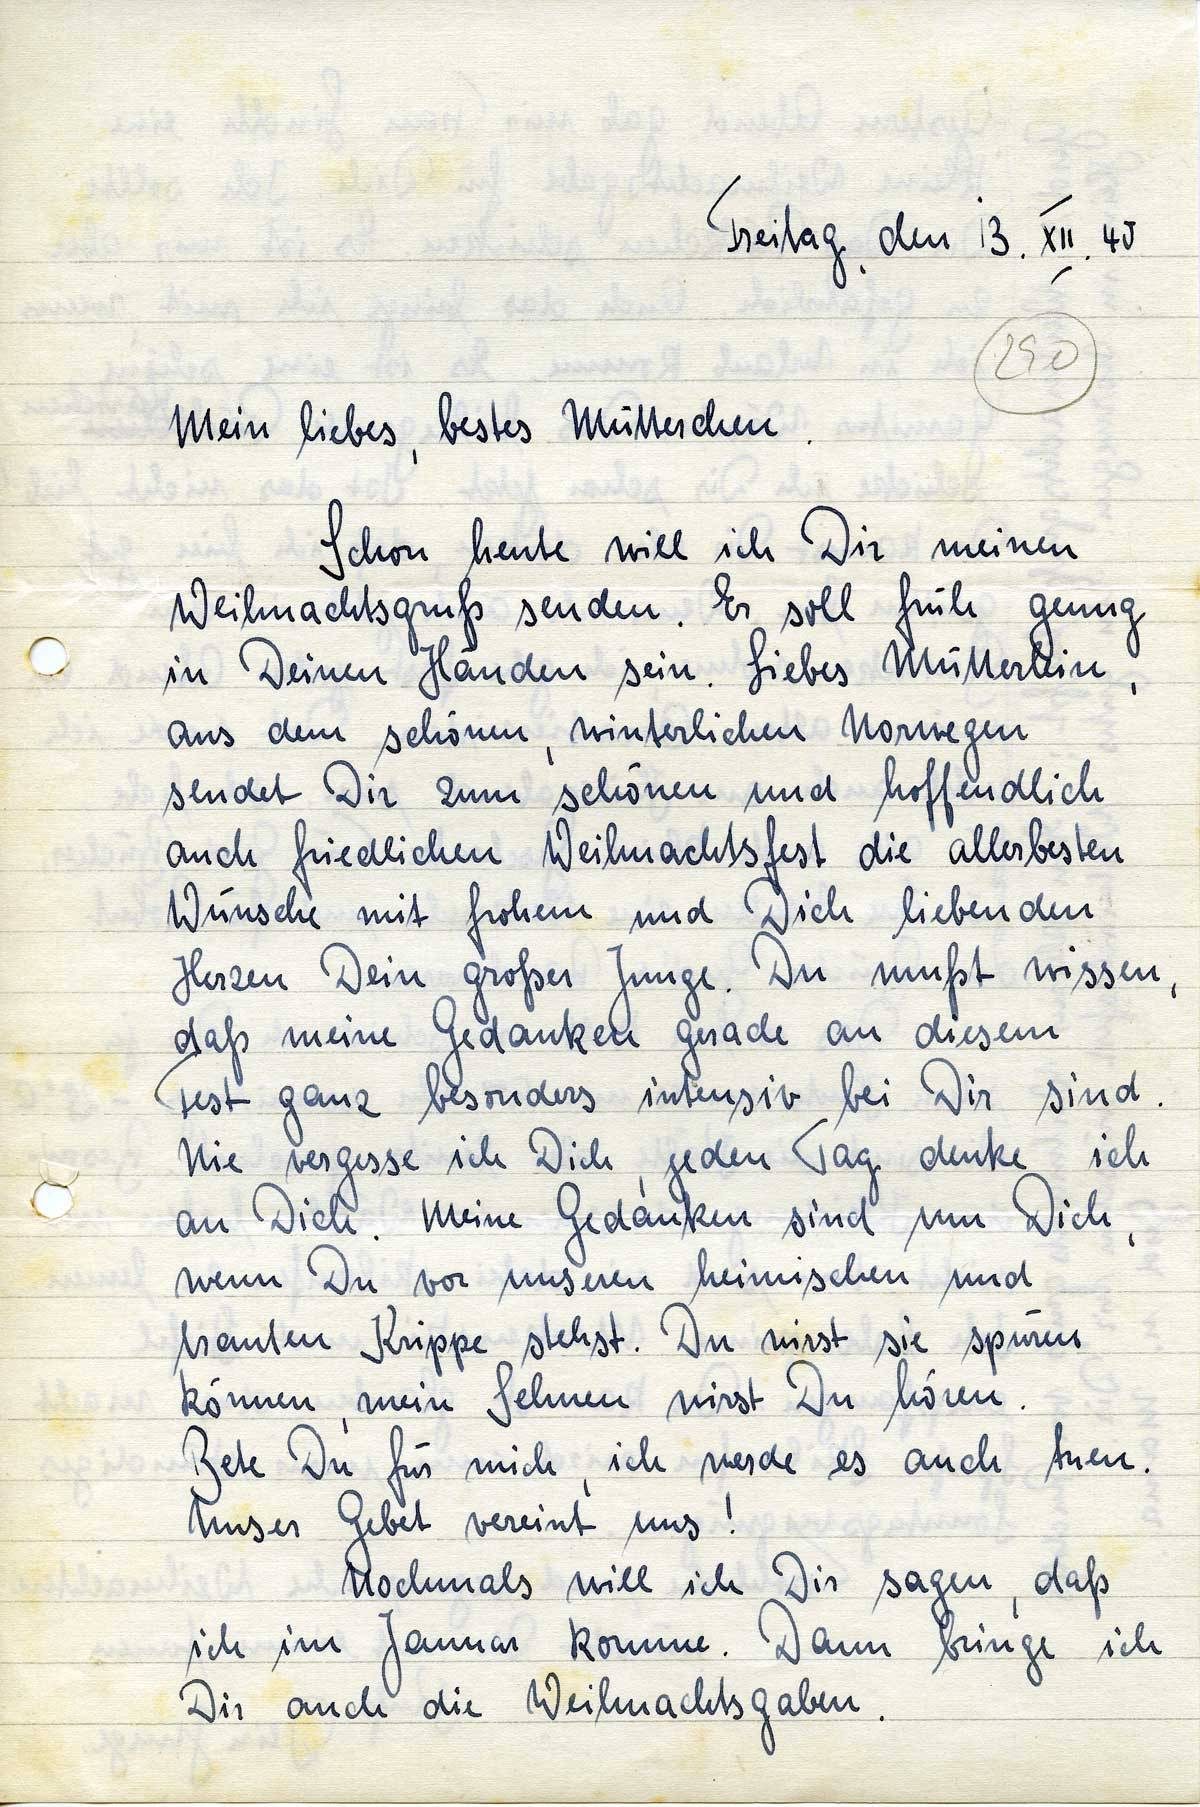 Freitag, den 13. XII. 40
290
Mein liebes, bestes Mütterchen.
Schon heute will ich Dir meinen
Weihnachtsgruß senden. Er soll früh genug
in Deinen Händen sein. Liebes Mütterlein,
aus dem schönen, winterlichen Norwegen
sendet Dir zum schönen und hoffendlich
auch friedlichen Weihnachtsfest die allerbesten
Wünsche mit frohem und Dich liebenden
Herzen Dein großer Junge. Du mußt wissen,
daß meine Gedanken gerade an diesem
Fest ganz besonders intensiv bei Dir sind.
Nie vergesse ich Dich, jeden Tag denke ich
an Dich. Meine Gedanken sind um Dich,
wenn Du vor unseren heimischen und
trauten Krippe stehst. Du wirst sie spüren
können, mein Sehnen wirst Du hören.
Bete Du für mich, ich werde es auch tuen.
Unser Gebet vereint uns!
Nochmals will ich Dir sagen, daß
ich im Januar komme. Dann bringe ich
Dir auch die Weihnachtsgaben.